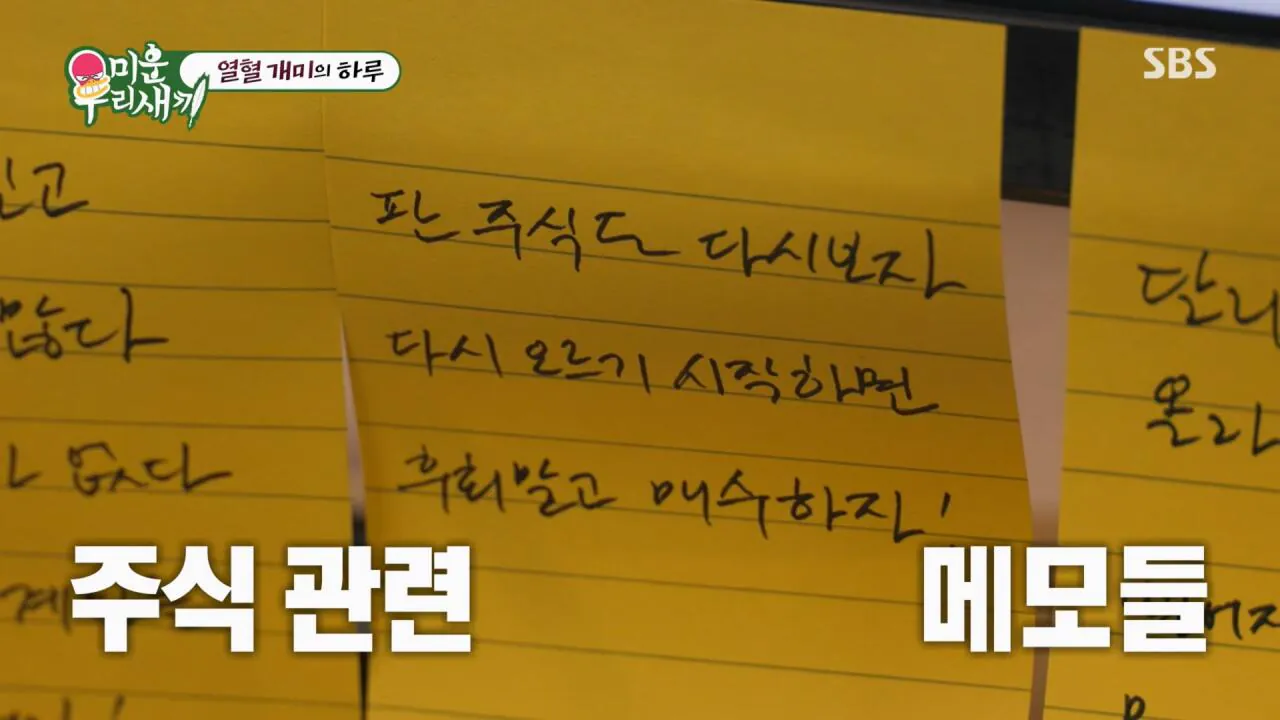 미운
우리새끼
열혈 개미의 하루
SBS
판 주식도 다시보자
다시 오르기 시작하면
후회말고 매수하자!
많다
없다
달리
올라
주식 관련
메모들